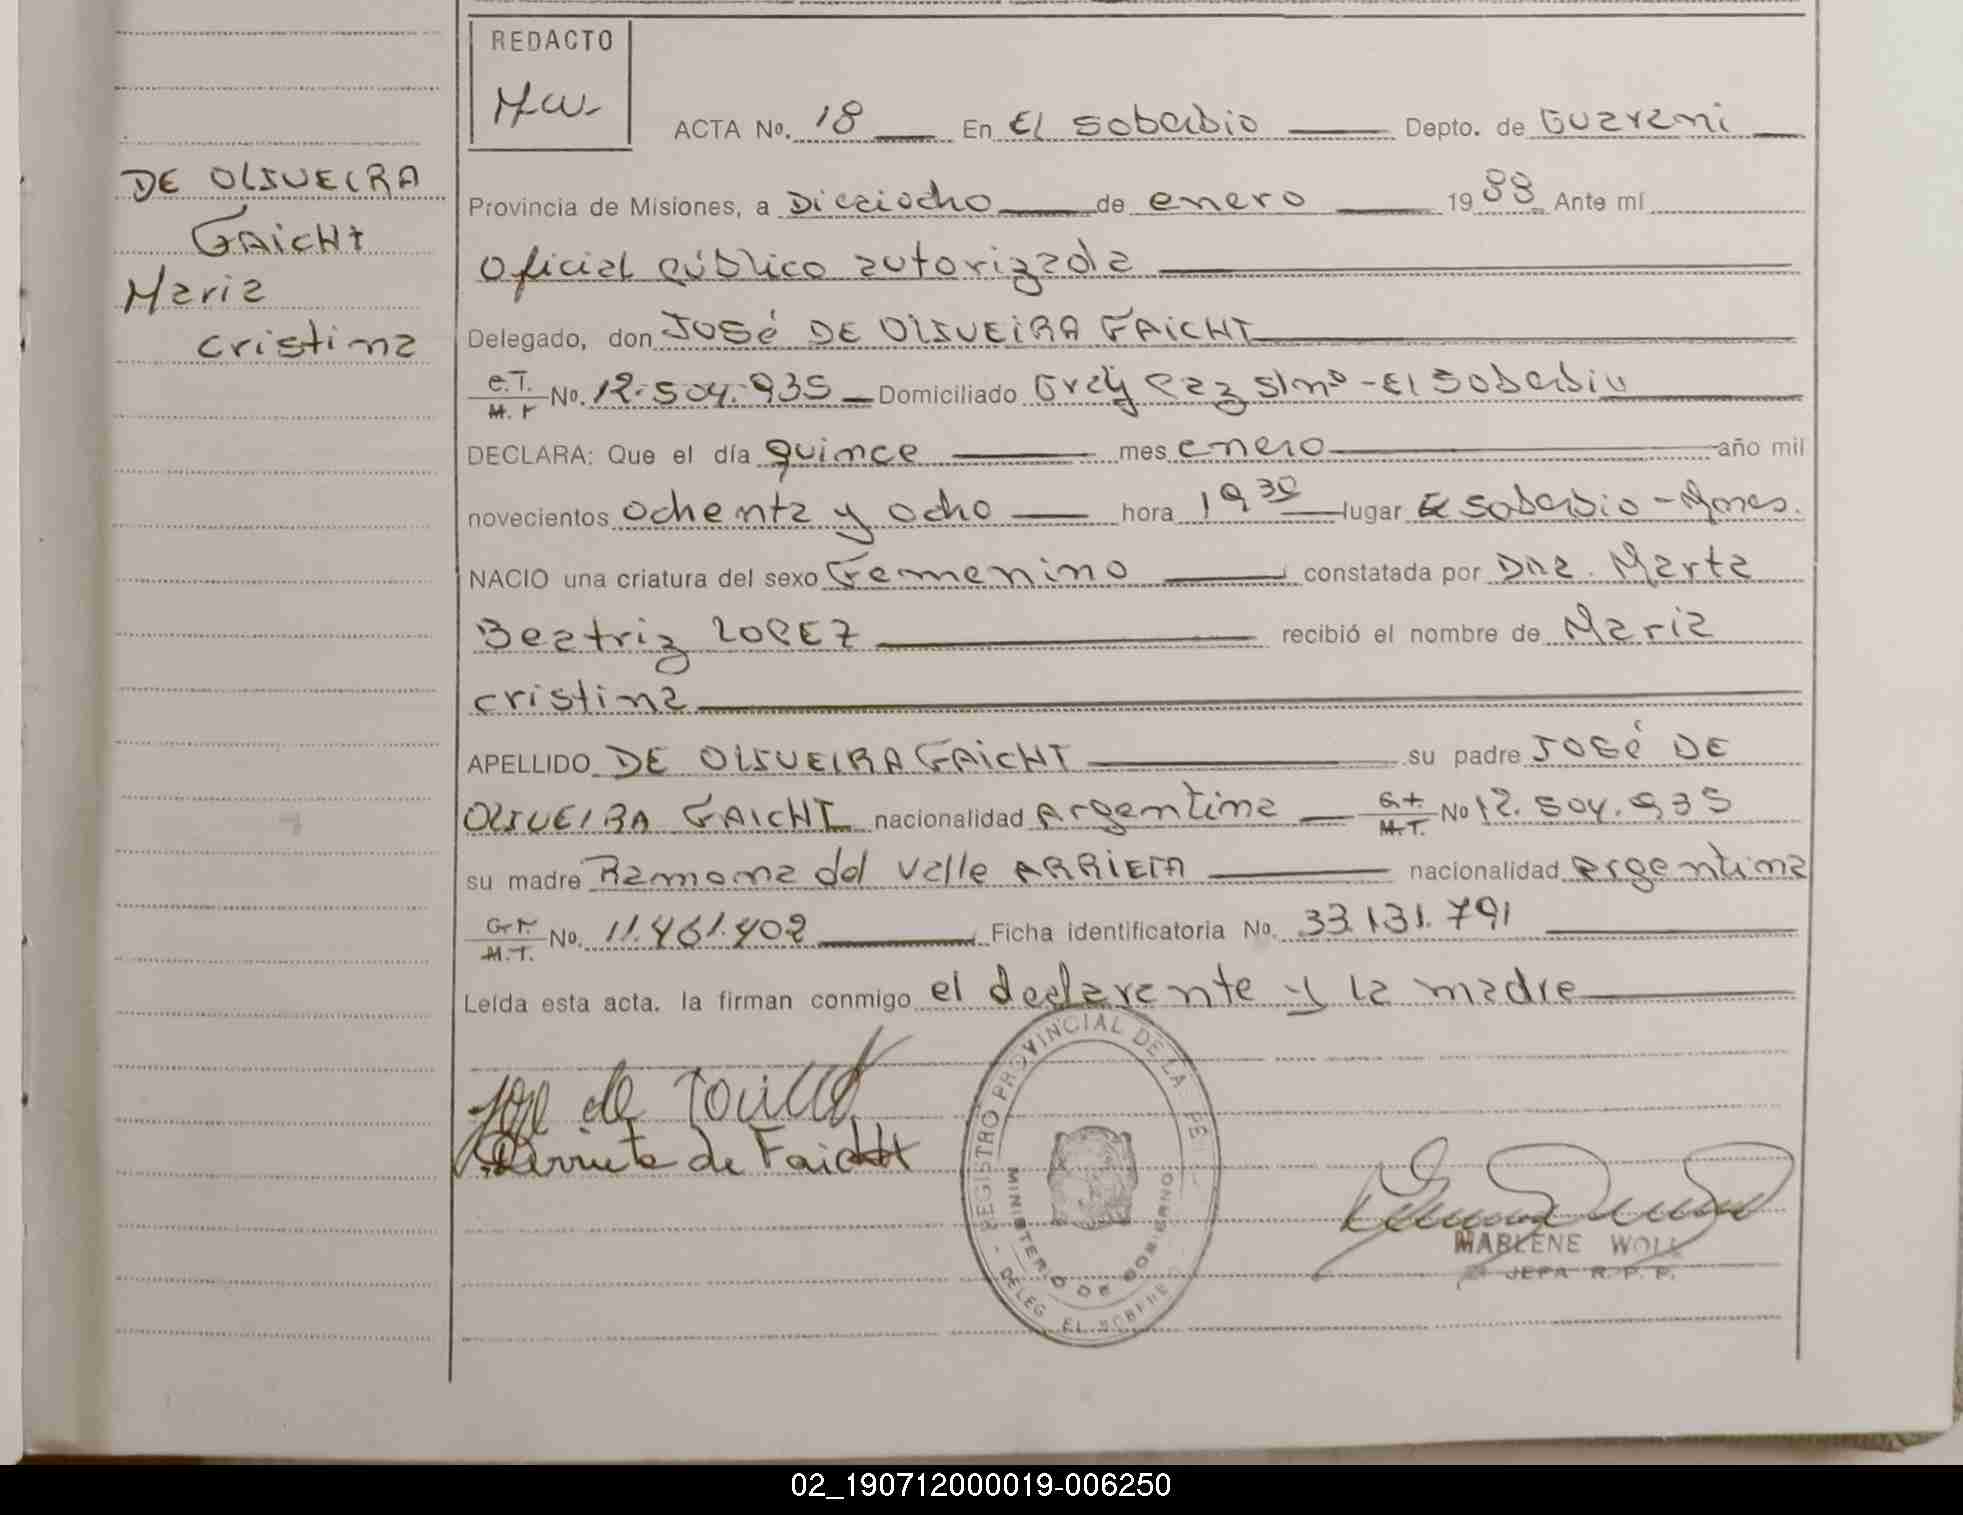 REDACTO
Mw.
ACTA No. 18 En El Soberbio Depto. de Guarani
DE OLIVEIRA
FAICHT
Maria
cristina
Provincia de Misiones, a Dieciocho de enero 1988 Ante mí
Oficial público autorizada
Delegado, don JOSÉ DE OLIVEIRA FAICHT
C.I. M. I No. 12.504.935 Domiciliado Gral Paz s/nº - El Soberbio
DECLARA: Que el día quince mes enero año mil
novecientos ochenta y ocho hora 19 30 lugar El Soberbio - Mnes.
NACIO una criatura del sexo Femenino constatada por Dña. Marta
Beatriz LOPEZ recibió el nombre de Maria
cristina
APELLIDO DE OLIVEIRA FAICHT su padre JOSÉ DE
OLIVEIRA FAICHT nacionalidad Argentina M.T. No 12.504.935
su madre Ramona del Valle ARRIETA nacionalidad Argentina
M.T. No. 11.461.402 Ficha identificatoria No. 33.131.791
Leída esta acta. la firman conmigo el declarante y la madre
Arrieta de Faicht
REGISTRO PROVINCIAL DE LA PE
MINISTERIO DE GOBIERNO
DELEG. EL SOBERBIO
MARLENE WOLL
JEFA R. P. P.
02_190712000019-006250